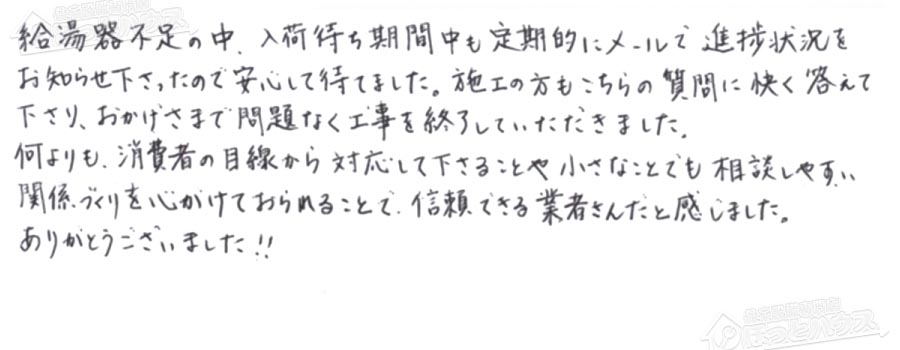 給湯器不足の中、入荷待ち期間中も定期的にメールで進捗状況を
お知らせ下さったので安心して待てました。施工の方もこちらの質問に快く答えて
下さり、おかげさまで問題なく工事を終了していただきました。
何よりも、消費者の目線から対応して下さることや小さなことでも相談しやすい
関係づくりを心がけておられることで、信頼できる業者さんだと感じました。
ありがとうございました!!
ほっとハウス